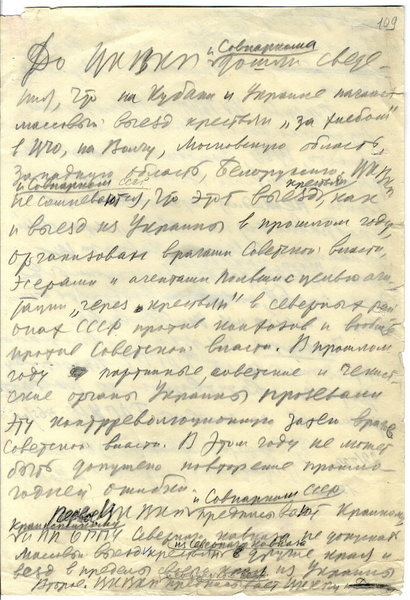 109
и Совнаркома
До ЦК ВКП дошли сведе-
ния, что на Кубани и Украине начался
массовый выезд крестьян „за хлебом"
в ЦЧО, на Волгу, Московскую область,
Западную область, Белоруссию. ЦК ВКП
и Совнарком СССР
не сомневаются, что этот выезд крестьян, как
и выезд из Украины в прошлом году,
организован врагами Советской власти,
эсерами и агентами Польши с целью аги-
тации „через крестьян" в северных рай-
онах СССР против колхозов и вообще
против Советской власти. В прошлом
году партийные, советские и чекист-
ские органы Украины прозевали
эту контрреволюционную затею врагов
Советской власти. В этом году не может
быть допущено повторение прошло-
годней ошибки.
Первое. ЦК ВКП и Совнарком СССР предписывают крайкому,
крайисполкому
и ПП ОГПУ Северного Кавказа не допускать
массовый выезд крестьян из Северного Кавказа в другие края и
въезд в пределы края из Украины
Второе. ЦК ВКП предписывает ЦК КП(б)У